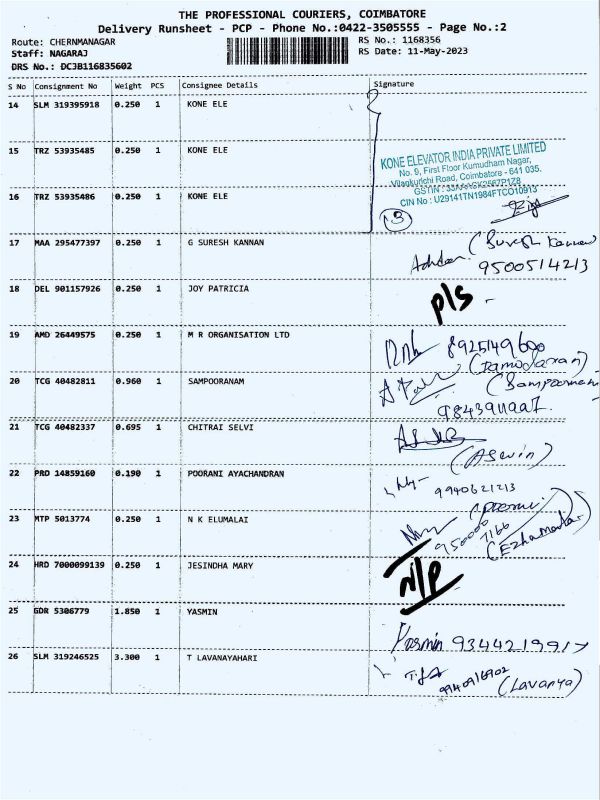 THE PROFESSIONAL COURIERS, COIMBATORE
Delivery Runsheet - PCP - Phone No.:0422-3505555 - Page No.:2
Route: CHERNMANAGAR RS No.: 1168356
Staff: NAGARAJ RS Date: 11-May-2023
DRS No.: DCJB116835602
S No Consignment No Weight PCS Consignee Details Signature
14 SLM 319395918 0.250 1 KONE ELE
15 TRZ 53935485 0.250 1 KONE ELE
KONE ELEVATOR INDIA PRIVATE LIMITED
No. 9, First Floor Kumudham Nagar,
Vilagkurichi Road, Coimbatore - 641 035.
GSTIN :
CIN No : U29141TN1984FTC010913
16 TRZ 53935486 0.250 1 KONE ELE
3
17 MAA 295477397 0.250 1 G SURESH KANNAN
(Suresh Kannan
9500514213
18 DEL 901157926 0.250 1 JOY PATRICIA
P/S -
19 AMD 26449575 0.250 1 M R ORGANISATION LTD
8925149600
(Damodaran)
20 TCG 40482811 0.960 1 SAMPOORANAM
(Sampoornam
21 TCG 40482337 0.695 1 CHITRAI SELVI
(Aswin)
22 PRD 14859160 0.190 1 POORANI AYACHANDRAN
9940621213
23 MTP 5013774 0.250 1 N K ELUMALAI
950000
7166
24 HRD 7000099139 0.250 1 JESINDHA MARY
N/P
25 GDR 5306779 1.850 1 YASMIN
Yasmin 9344219917
26 SLM 319246525 3.300 1 T LAVANAYAHARI
9940916902
(Lavanya)